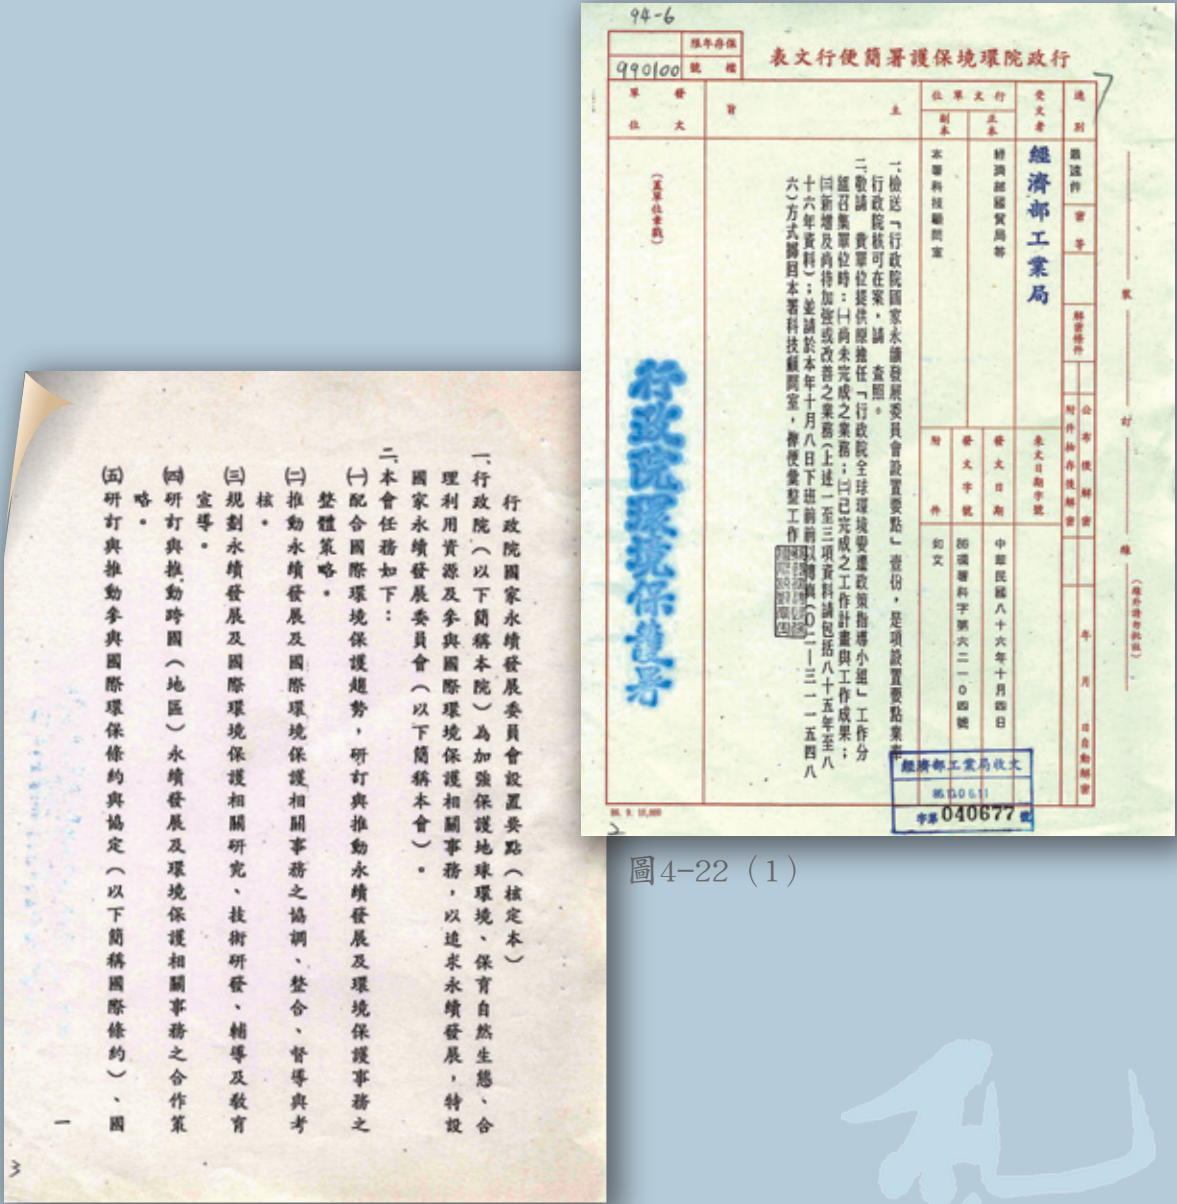 94-6
保存年限
檔號
990100
行政院環境保護署簡便行文表
速別
最速件
密等
解密條件
公布後解密
附件抽存後解密
年 月 日自動解密
受文者
經濟部工業局
來文日期字號
行文單位
正本
經濟部國貿局等
副本
本署科技顧問室
發文日期
中華民國八十六年十月四日
發文字號
86環署科字第六二一0四號
附件
如文
主旨
一、檢送「行政院國家永續發展委員會設置要點」壹份，是項設置要點業奉
行政院核可在案，請 查照。
二、敬請 貴單位提供原擔任「行政院全球環境變遷政策指導小組」工作分
組召集單位時：㈠尚未完成之業務；㈡已完成之工作計畫與工作成果；
㈢新增及尚待加強或改善之業務(上述一至三項資料請包括八十五年至八
十六年資料)；並請於本年十月八日下班前以傳真(0二—三一一五四八
六)方式擲回本署科技顧問室，俾便彙整工作
發文單位
(蓋單位章戳)
行政院環境保護署
裝
訂
線
(線外請勿批註)
經濟部工業局收文
字第040677號
86. 9. 10,000
圖4-22（1）
行政院國家永續發展委員會設置要點(核定本)
一、行政院(以下簡稱本院)為加強保護地球環境、保育自然生態、合
理利用資源及參與國際環境保護相關事務，以追求永續發展，特設
國家永續發展委員會(以下簡稱本會)。
二、本會任務如下：
㈠配合國際環境保護趨勢，研訂與推動永續發展及環境保護事務之
整體策略。
㈡推動永續發展及國際環境保護相關事務之協調、整合、督導與考
核。
㈢規劃永續發展及國際環境保護相關研究、技術研發、輔導及教育
宣導。
㈣研訂與推動跨國(地區)永續發展及環境保護相關事務之合作策
略。
㈤研訂與推動參與國際環保條約與協定(以下簡稱國際條約)、國
一
3